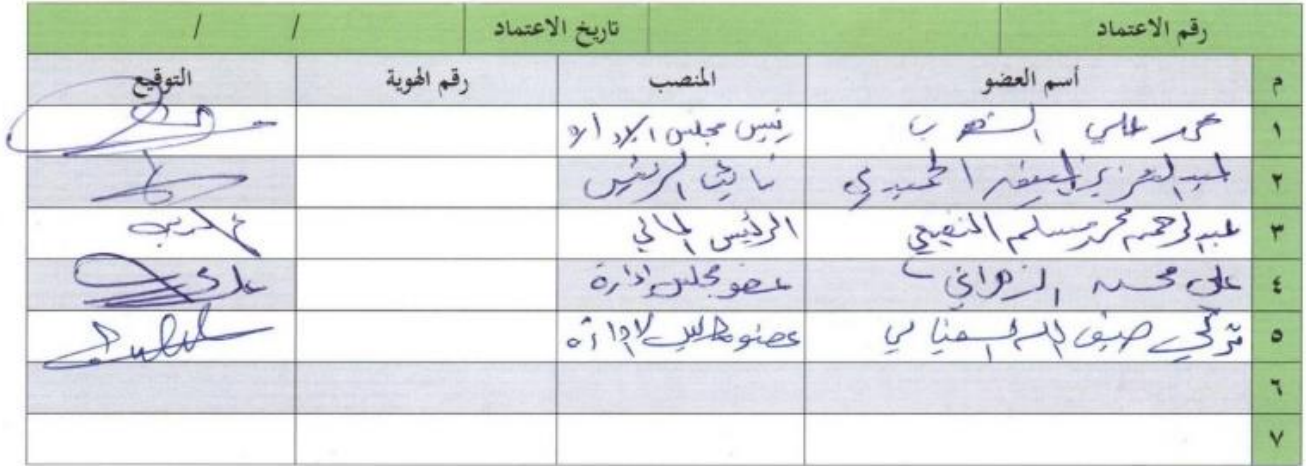 رقم الاعتماد تاريخ الاعتماد / /
م أسم العضو المنصب رقم الهوية التوقيع
١ محمد علي رئيس مجلس الإدارة
٢ عبدالعزيز الحميدي نائب الرئيس
٣ عبدالرحمن محمد مسلم النفيعي الرئيس المالي
٤ علي محسن الزهراني عضو مجلس إدارة
٥ تركي ضيف الله السفياني عضو مجلس الإدارة
٦
٧